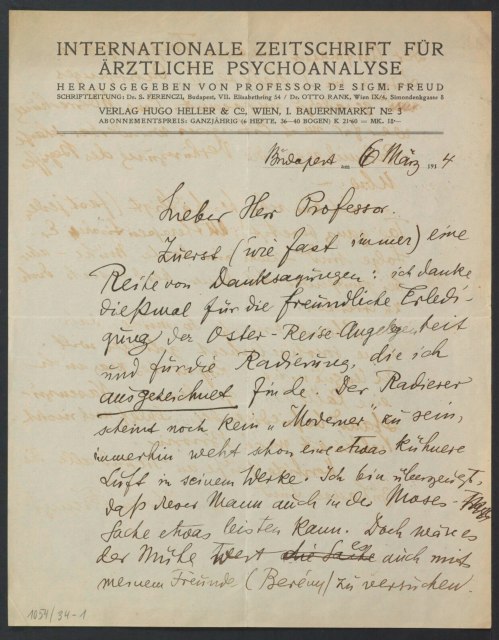 INTERNATIONALE ZEITSCRIFT FÜR
ÄRZTLICHE PSYCHOANALYSE
HERAUSGEGEBEN VON PROFESSOR DR SIGM. FREUD
SCHRIFTLEITUNG: Dr. S. FERENCZI, Budapest, VII. Elisabethring 54 / Dr. OTTO RANK, Wien IX/4, Simondenkgasse 8
VERLAG HUGO HELLER & Co, WIEN, I. BAUERNMARKT No 3
ABONNEMENTSPREIS: GANZJÄHRIG (6 HEFTE, 36–40 BOGEN) K 21·60 = MK. 18·—
Budapest am 6 März 1914
Lieber Herr Professor.
Zuerst (wie fast immer) eine
Reihe von Danksagungen: ich danke
dießmal für die freundliche Erledi-
gung der Oster-Reise-Angelegenheit
und für die Radierung, die ich
ausgezeichnet finde. Der Radierer
scheint noch kein „Moderner" zu sein,
immerhin weht schon eine etwas kühnere
Luft in seinem Werke. Ich bin überzeugt,
daß dieser Mann auch in der Moses-
Sache etwas leisten kann. Doch wäre es
der Mühe wert die Sache es auch mit
meinem Freunde (Berény) zu versuchen.
1054/34-1